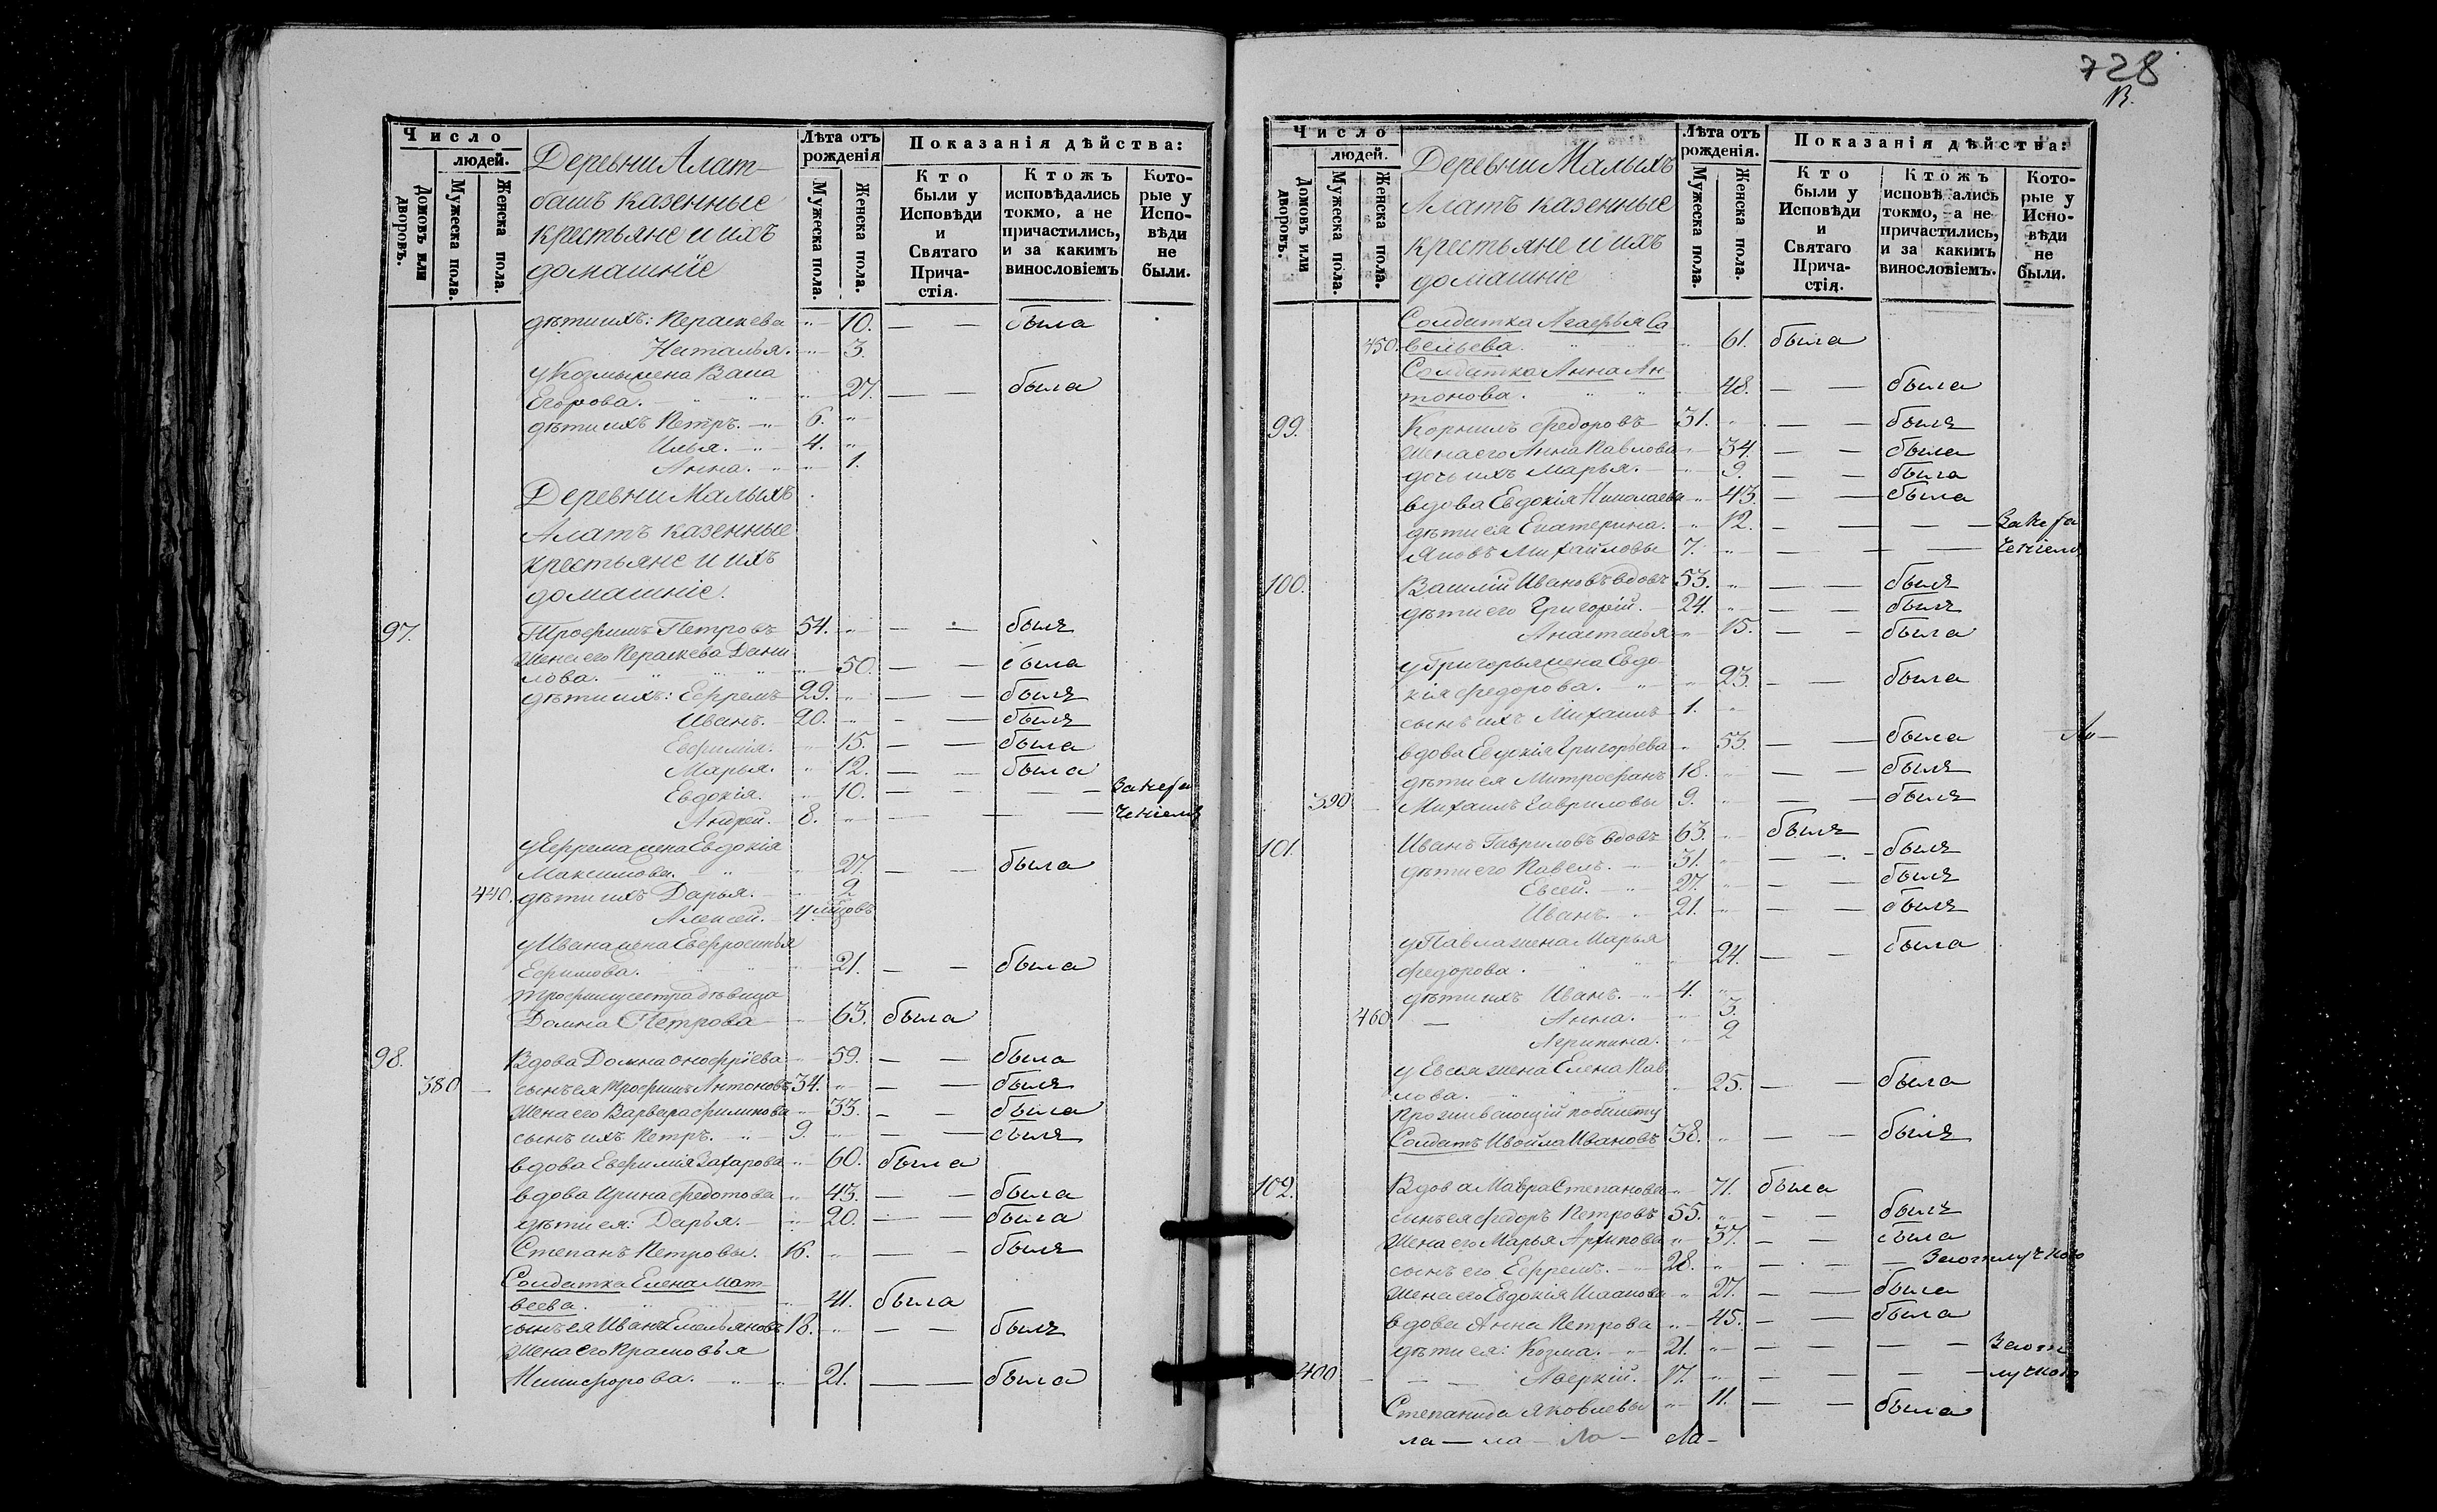 Число
людей.
Домовъ или дворовъ.
Мужеска пола.
Женска пола.
Деревни Алат-
башъ казенные
крестьяне и ихъ
домашніе
Лѣта отъ рожденія
Мужеска пола.
Женска пола.
Показанія дѣйства:
Кто были у Исповѣди и Святаго Прича-стія.
Ктожъ исповѣдались токмо, а не причастились, и за какимъ винословіемъ
Кото-рые у Испо-вѣди не были.
дѣти ихъ: Параскева " 10. — — была
Наталья. " 3.
у Козмы жена Васса
Егорова. " 27. — — была
дѣти ихъ Петръ. 6. "
Илья. 4. "
Анна. " 1.
Деревни Малыхъ
Алатъ казенные
крестьяне и ихъ
домашніе.
97. Трофимъ Петровъ 54. " — — былъ
Жена его Параскева Дани
лова. " 50. — — была
дѣти ихъ: Ефремъ 29. " — — былъ
Иванъ. 20. " — — былъ
Евфимія. " 15. — — была
Марья. " 12. — — была
Евдокія. " 10. — — — — За нера
Андрей. 8. " — — — ченіемъ
у Ефрема жена Евдокія
Максимова. " 27. — — была
440. дѣти ихъ Дарья. " 2.
Алексей. 4. мѣсяцовъ
у Ивана жена Евфросинья
Ефимова. " 21. — — была
Трофиму сестра дѣвица
Домна Петрова " 63. была
98. Вдова Домна Онофріева " 59. — — была
380 — сынъ ея Трофимъ Антоновъ 34. " — — былъ
Жена его Варвара Филипова " 33. — — была
сынъ ихъ Петръ. 9. " — — былъ
вдова Евфимія Захарова " 60. была
вдова Ирина Федотова " 43. — — была
дѣти ея: Дарья. " 20. — — была
Степанъ Петровы. 16. " — — былъ
Солдатка Елена Мат-
веева. " 41. была
сынъ ея Иванъ Емельяновъ 18. " — — былъ
Жена его Прасковья
Никифорова. " 21. — — была
728
Число
людей.
Домовъ или дворовъ.
Мужеска пола.
Женска пола.
Деревни Малыхъ
Алатъ казенные
крестьяне и ихъ
домашніе
Лѣта отъ рожденія.
Мужеска пола.
Женска пола.
Показанія дѣйства:
Кто были у Исповѣди и Святаго Прича-стія.
Ктожъ исповѣ ались токмо, а не причастились, и за какимъ винословіемъ.
Кото-рые у Испо-вѣди не были.
Солдатка Агафья Са
450. вельева. " 61. была
Солдатка Анна Ан-
тонова. " 48. — — была
99. Корнилъ Федоровъ 31. " — — былъ
Жена его Анна Павлова " 34. — — была
дочь ихъ Марья. " 9. — — была
вдова Евдокія Николаева " 43. — — была
дѣти ея Екатерина. " 12. — — — — За нера
Яковъ Михайловы 7. " — — — ченіемъ
100. Василій Ивановъ вдовъ 53. " — — былъ
дѣти его Григорій. 24. " — — былъ
Анастасья " 15. — — была
у Григорья жена Евдо-
кія Федорова. " 23. — — была
сынъ ихъ Михаилъ 1. "
вдова Евдокія Григорьева " 53. — — была
дѣти ея Митрофанъ 18. " — — былъ
390 — Михаилъ Гавриловы 9. " — — былъ
101. Иванъ Гавриловъ вдовъ 63. " былъ
дѣти его Павелъ. 31. " — — былъ
Евсей. 27. " — — былъ
Иванъ. 21. " — — былъ
у Павла жена Марья
Федорова. " 24. — — была
дѣти ихъ Иванъ. 4. "
460 — Анна. " 3.
Агрипина. " 2
у Евсея жена Елена Пав
лова. " 25. — — была
Проживающій по билету
Солдатъ Ивановъ 38. " — — былъ
102. Вдова Мавра Степанова " 71. была
сынъ ея Федоръ Петровъ 55. " — — былъ
Жена его Марья Архипова " 37. — — была
сынъ его Ефремъ. 28. " — — — За отлучкою
Жена его Евдокія " 27. — — была
вдова Анна Петрова " 45. — — была
дѣти ея: Козма. 21. " — — — — За от
400 — — Аверкій. 17. " — — — — лучкою
Степанида Яковлевы " 11. — — была